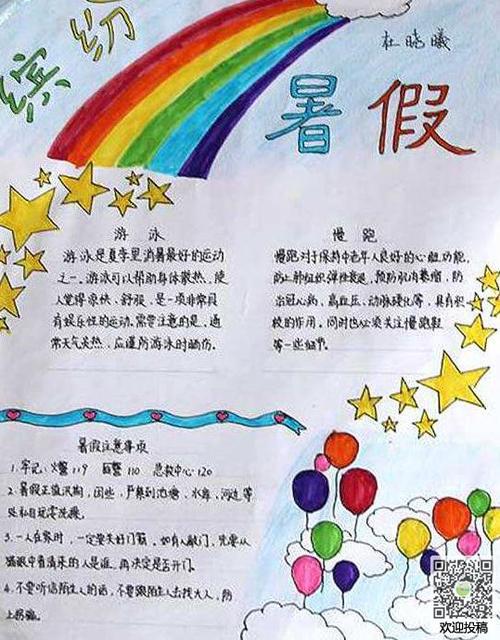 缤纷
杜晓曦
暑假
游泳
游泳是夏季里消暑最好的运动
之一。游泳可以帮助身体散热，使
人觉得凉快、舒服，是一项非常具
有娱乐性的运动。需要注意的是，通
常天气炎热，应谨防游泳时晒伤。
慢跑
慢跑对于保持中老年人良好的心脏功能，
防止肺组织弹性衰退，预防肌肉萎缩，防
治冠心病、高血压、动脉硬化等，具有积
极的作用。同时也必须关注慢跑鞋
等一些细节。
暑假注意事项
1.牢记：火警119 匪警110 急救中心120
2.暑假正值汛期，因些，严禁到池塘、水库、河边等
处私自玩耍洗澡。
3.一人在家时，一定要关好门窗。如有人敲门，先要从
猫眼中看清来的人是谁，再决定是否开门。
4.不要听信陌生人的话，不要跟陌生人去找大人，防
上拐骗。
欢迎投稿